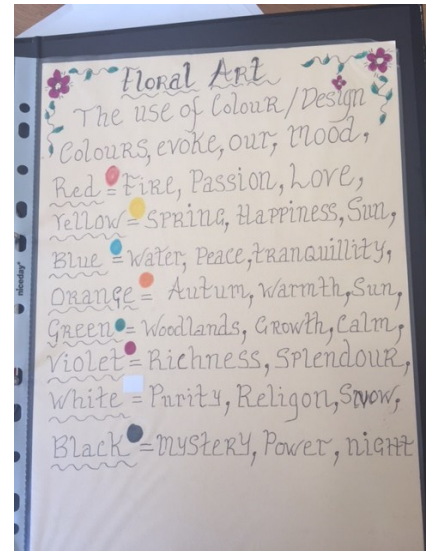 Floral Art
The use of Colour/Design
Colours, evoke, our, mood,
Red = Fire, Passion, Love,
Yellow = Spring, Happiness, Sun,
Blue = Water, Peace, tranquillity,
Orange = Autum, Warmth, Sun,
Green = Woodlands, Growth, Calm,
Violet = Richness, Splendour,
White = Purity, Religon, Snow,
Black = Mystery, Power, night
niceday